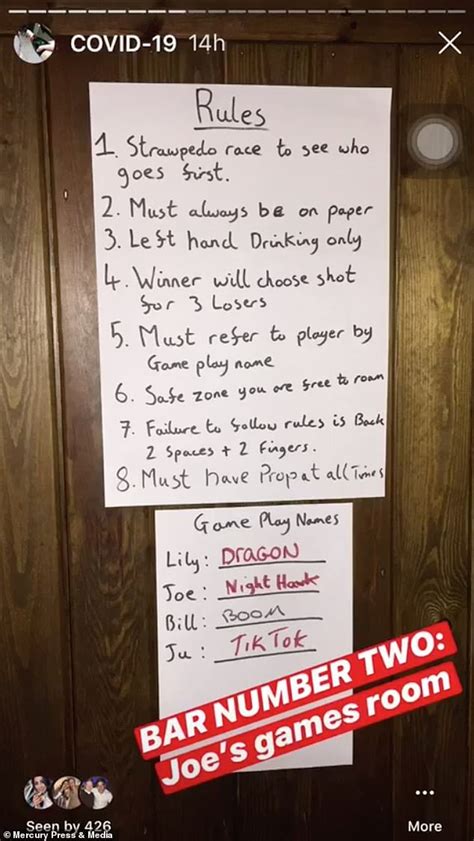 COVID-19 14h
Rules
1. Strawpedo race to see who
goes first.
2. Must always be on paper
3. Left hand Drinking only
4. Winner will choose shot
for 3 Losers
5. Must refer to player by
Game play name
6. Safe zone you are free to roam
7. Failure to follow rules is Back
2 Spaces + 2 Fingers.
8. Must have Prop at all Times
Game Play Names
Lily: DRAGON
Joe: Night Hawk
Bill: BOOM
Ju: TikTok
BAR NUMBER TWO:
Joe's games room
Seen by 426
More
© Mercury Press & Media